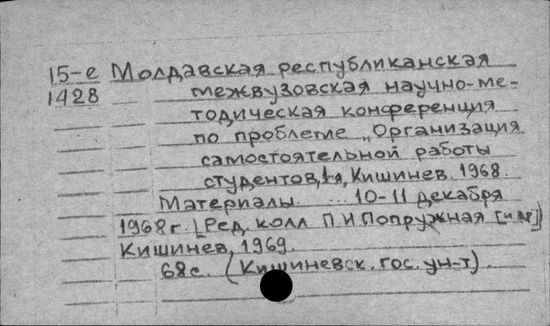 15-е Молдавская республиканская
1428 межвузовская научно-ме-
тодическая конференция
по проблеме „Организация
самостоятельной работы
студентов, 1-я, Кишинев. 1968.
Материалы ... 10-11 декабря
1968 г. [Ред. колл П.И Попружная [и др]]
Кишинев, 1969.
68 с. (Кишиневск. гос. ун-т).